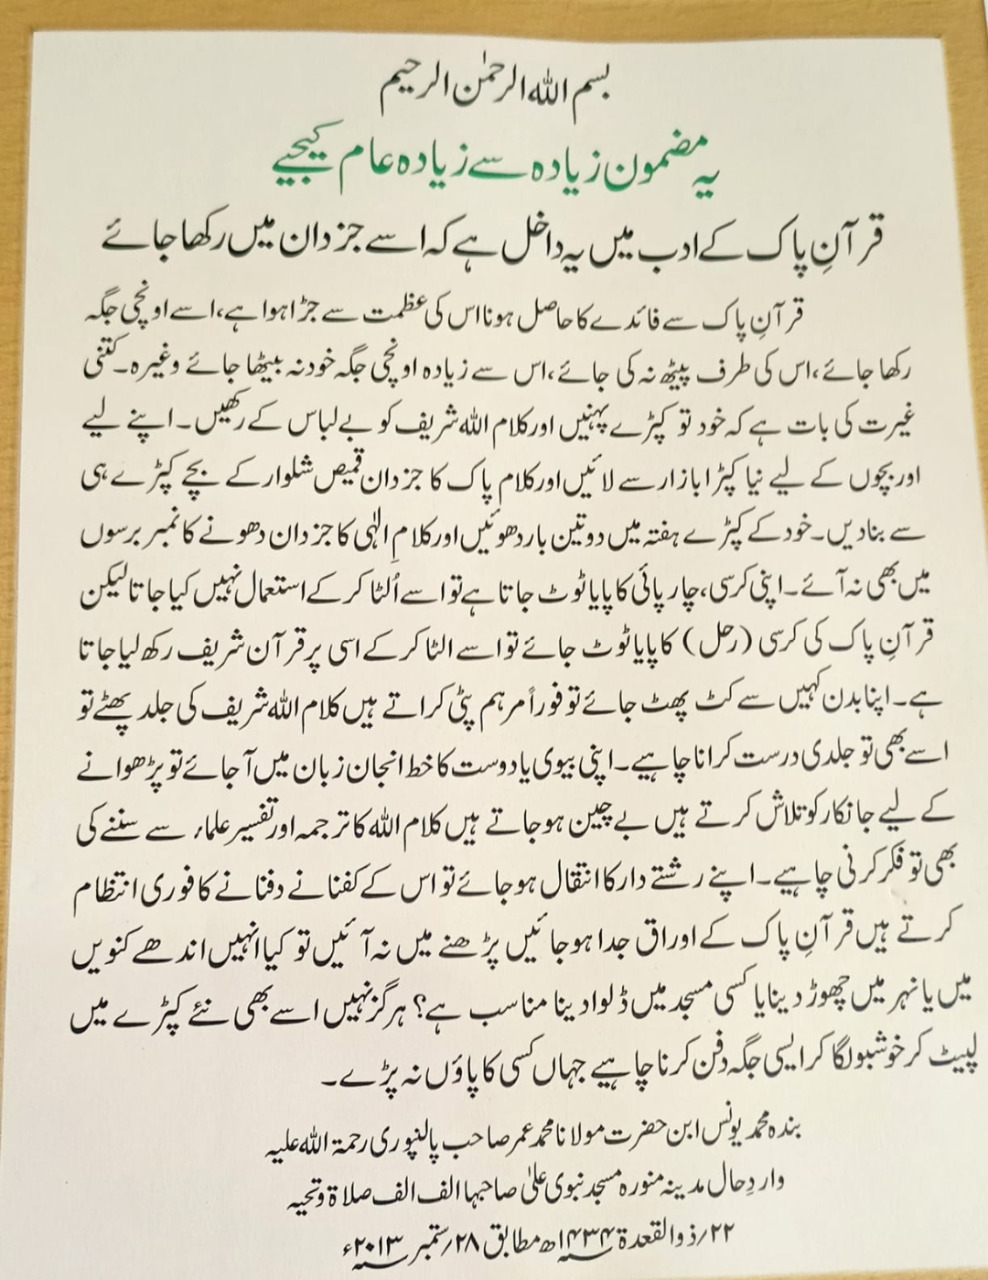 بسم اللہ الرحمٰن الرحیم
یہ مضمون زیادہ سے زیادہ عام کیجیے
قرآنِ پاک کے ادب میں یہ داخل ہے کہ اسے جزدان میں رکھا جائے
قرآنِ پاک سے فائدے کا حاصل ہونا اس کی عظمت سے جڑا ہوا ہے، اسے اونچی جگہ
رکھا جائے، اس کی طرف پیٹھ نہ کی جائے، اس سے زیادہ اونچی جگہ خود نہ بیٹھا جائے وغیرہ۔ کتنی
غیرت کی بات ہے کہ خود تو کپڑے پہنیں اور کلام اللہ شریف کو بے لباس کے رکھیں۔ اپنے لیے
اور بچوں کے لیے نیا کپڑا بازار سے لائیں اور کلام پاک کا جزدان قمیص شلوار کے بچے کپڑے ہی
سے بنادیں۔ خود کے کپڑے ہفتہ میں دو تین بار دھوئیں اور کلامِ الٰہی کا جزدان دھونے کا نمبر برسوں
میں بھی نہ آئے۔ اپنی کرسی، چارپائی کا پایا ٹوٹ جاتا ہے تو اسے اُلٹا کر کے استعمال نہیں کیا جاتا لیکن
قرآنِ پاک کی کرسی (رحل) کا پایا ٹوٹ جائے تو اسے الٹا کر کے اسی پر قرآن شریف رکھ لیا جاتا
ہے۔ اپنا بدن کہیں سے کٹ پھٹ جائے تو فوراً مرہم پٹی کراتے ہیں کلام اللہ شریف کی جلد پھٹے تو
اسے بھی تو جلدی درست کرانا چاہیے۔ اپنی بیوی یا دوست کا خط انجان زبان میں آجائے تو پڑھوانے
کے لیے جانکار کو تلاش کرتے ہیں بے چین ہوجاتے ہیں کلام اللہ کا ترجمہ اور تفسیر علماء سے سننے کی
بھی تو فکر کرنی چاہیے۔ اپنے رشتے دار کا انتقال ہوجائے تو اس کے کفنانے دفنانے کا فوری انتظام
کرتے ہیں قرآنِ پاک کے اوراق جدا ہوجائیں پڑھنے میں نہ آئیں تو کیا انہیں اندھے کنویں
میں یا نہر میں چھوڑ دینا یا کسی مسجد میں ڈلوا دینا مناسب ہے؟ ہرگز نہیں اسے بھی نئے کپڑے میں
لپیٹ کر خوشبو لگا کر ایسی جگہ دفن کرنا چاہیے جہاں کسی کا پاؤں نہ پڑے۔
بندہ محمد یونس ابن حضرت مولانا محمد عمر صاحب پالنپوری رحمۃ اللہ علیہ
واردِ حال مدینہ منورہ مسجد نبوی علیٰ صاحبہا الف الف صلاۃ وتحیہ
۲۲؍ذوالقعدۃ ۱۴۳۴ھ مطابق ۲۸؍ستمبر ۲۰۱۳ء